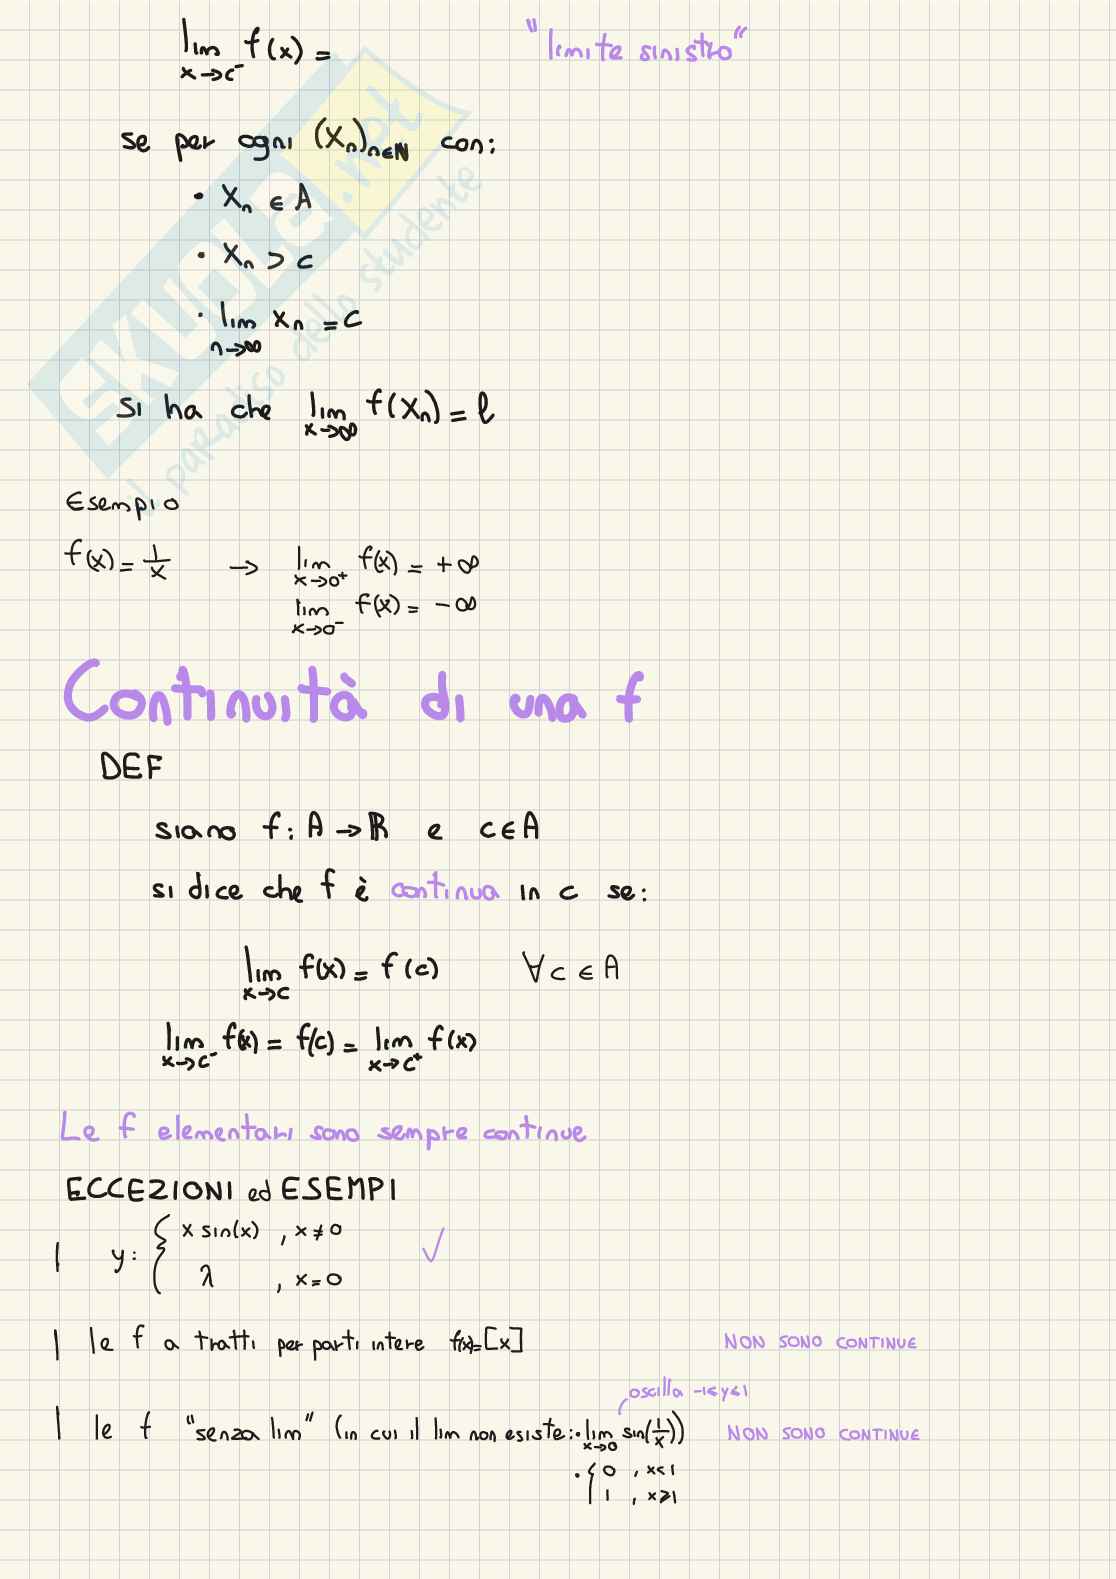 lim f(x) = "limite sinistro"
x→c⁻
se per ogni (xₙ)ₙ∈ℕ con:
• xₙ ∈ A
• xₙ > c
• lim xₙ = c
n→∞
si ha che lim f(xₙ) = ℓ
x→∞
Esempio
f(x) = 1/x → lim f(x) = +∞
x→0⁺
lim f(x) = -∞
x→0⁻
Continuità di una f
DEF
siano f: A → ℝ e c ∈ A
si dice che f è continua in c se:
lim f(x) = f(c) ∀ c ∈ A
x→c
lim f(x) = f(c) = lim f(x)
x→c⁻ x→c⁺
Le f elementari sono sempre continue
ECCEZIONI ed ESEMPI
| y: { x sin(x) , x ≠ 0 ✓
λ , x = 0
| le f a tratti per parti intere f(x)=[x] NON SONO CONTINUE
oscilla -1≤y≤1
| le f "senza lim" (in cui il lim non esiste: • lim sin(1/x)) NON SONO CONTINUE
x→0
• { 0 , x<1
1 , x≥1
SKUOLA.net
il paradiso dello studente